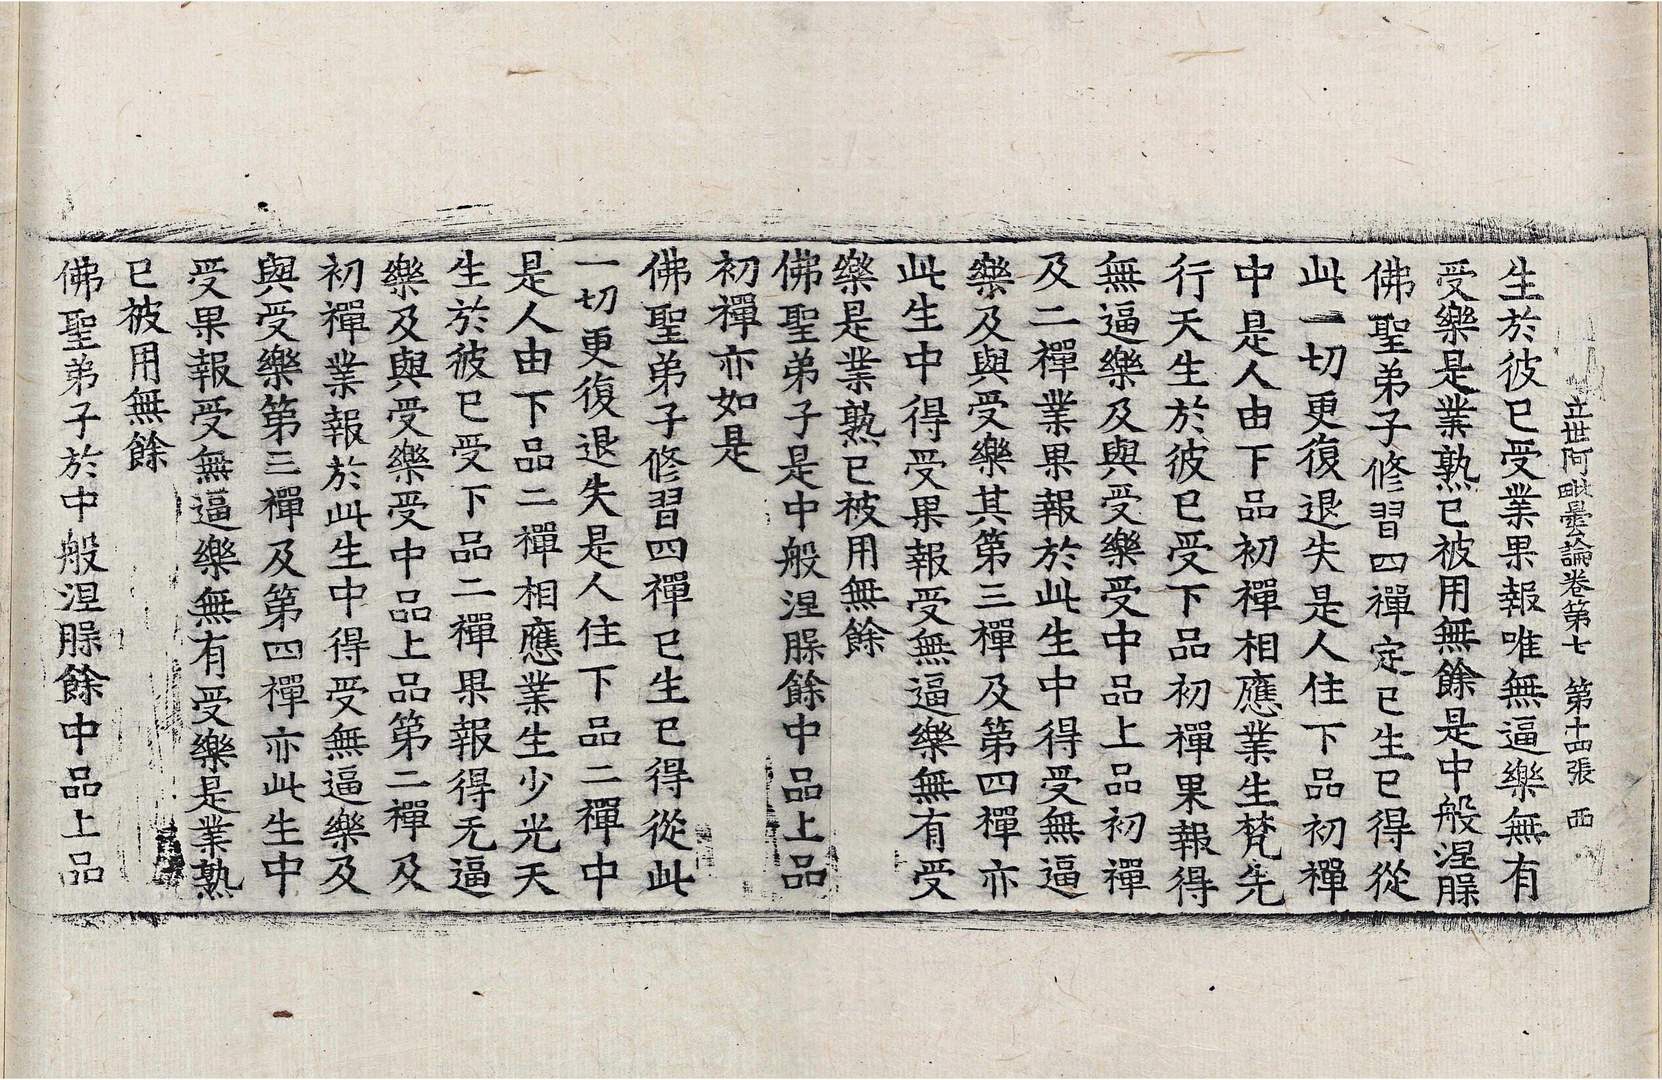 立世阿毗曇論卷第七　第十四張　西
生於彼已受業果報唯無逼樂無有
受樂是業熟已被用無餘是中般涅脲
佛聖弟子修習四禪定已生已得從
此一切更復退失是人住下品初禪
中是人由下品初禪相應業生梵先
行天生於彼已受下品初禪果報得
無逼樂及與受樂受中品上品初禪
及二禪業果報於此生中得受無逼
樂及與受樂其第三禪及第四禪亦
此生中得受果報受無逼樂無有受
樂是業熟已被用無餘
佛聖弟子是中般涅脲餘中品上品
初禪亦如是
佛聖弟子修習四禪已生已得從此
一切更復退失是人住下品二禪中
是人由下品二禪相應業生少光天
生於彼已受下品二禪果報得无逼
樂及與受樂受中品上品第二禪及
初禪業報於此生中得受無逼樂及
與受樂第三禪及第四禪亦此生中
受果報受無逼樂無有受樂是業熟
已被用無餘
佛聖弟子於中般涅脲餘中品上品